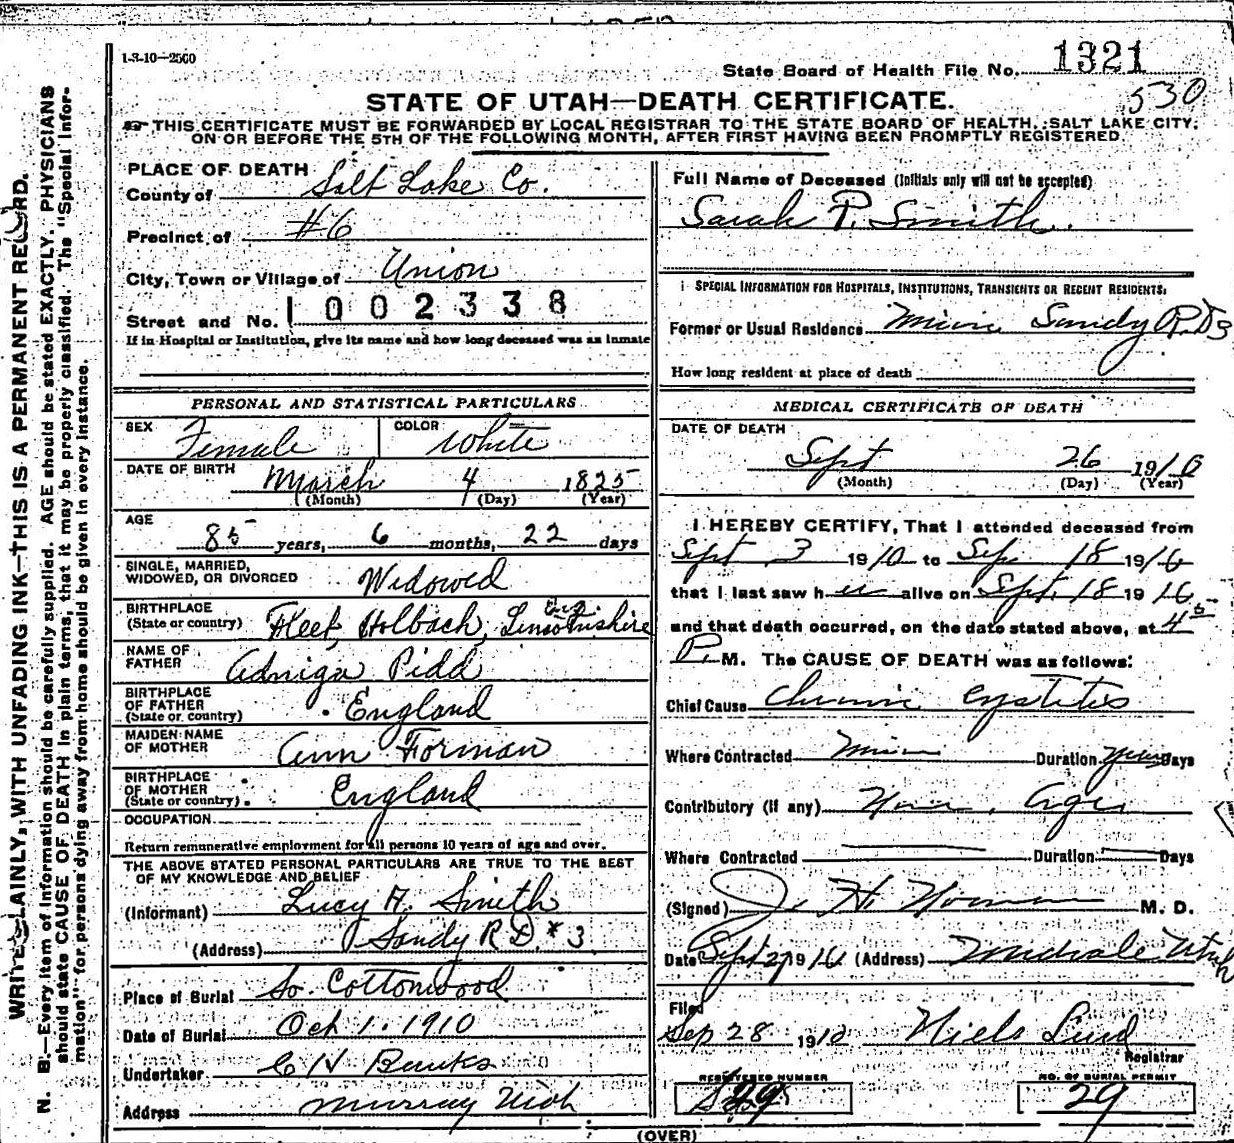 1-3-10—2500
State Board of Health File No. 1321
530
STATE OF UTAH—DEATH CERTIFICATE.
THIS CERTIFICATE MUST BE FORWARDED BY LOCAL REGISTRAR TO THE STATE BOARD OF HEALTH, SALT LAKE CITY,
ON OR BEFORE THE 5TH OF THE FOLLOWING MONTH, AFTER FIRST HAVING BEEN PROMPTLY REGISTERED
WRITE PLAINLY, WITH UNFADING INK—THIS IS A PERMANENT RECORD.
N. B.—Every item of information should be carefully supplied. AGE should be stated EXACTLY. PHYSICIANS
should state CAUSE OF DEATH in plain terms, that it may be properly classified. The "Special Infor-
mation" for persons dying away from home should be given in every instance.
PLACE OF DEATH
County of Salt Lake Co.
Precinct of #6
City, Town or Village of Union
Street and No. 1002338
If in Hospital or Institution, give its name and how long deceased was an inmate
PERSONAL AND STATISTICAL PARTICULARS
SEX Female COLOR White
DATE OF BIRTH March 4 1825
(Month) (Day) (Year)
AGE
85 years, 6 months, 22 days
SINGLE, MARRIED,
WIDOWED, OR DIVORCED Widowed
BIRTHPLACE
(State or country) Fleet, Holbach, Lincolnshire Eng.
NAME OF
FATHER Adniga Pidd
BIRTHPLACE
OF FATHER
(State or country) England
MAIDEN NAME
OF MOTHER Ann Forman
BIRTHPLACE
OF MOTHER
(State or country) England
OCCUPATION
Return remunerative employment for all persons 10 years of age and over.
THE ABOVE STATED PERSONAL PARTICULARS ARE TRUE TO THE BEST
OF MY KNOWLEDGE AND BELIEF
(Informant) Lucy A. Smith
(Address) Sandy R D # 3
Place of Burial So. Cottonwood
Date of Burial Oct 1. 1910
Undertaker
Address Murray Utah
Full Name of Deceased (Initials only will not be accepted)
Sarah P. Smith.
SPECIAL INFORMATION FOR HOSPITALS, INSTITUTIONS, TRANSIENTS OR RECENT RESIDENTS:
Former or Usual Residence Sandy R.D 3
How long resident at place of death
MEDICAL CERTIFICATE OF DEATH
DATE OF DEATH
Sept 26 1910
(Month) (Day) (Year)
I HEREBY CERTIFY, That I attended deceased from
Sept 3 1910 to Sep. 18 1910
that I last saw her alive on Sept. 18 1910
and that death occurred, on the date stated above, at 4 45
P. M. The CAUSE OF DEATH was as follows:
Chief Cause Chronic Cystitis
Where Contracted Duration years Days
Contributory (if any)
Where Contracted Duration Days
(Signed) M. D.
Date Sept 27 1910 (Address) Midvale Utah
Filed
Sep 28 1910 Niels Lind
Registrar
REGISTERED NUMBER
NO. OF BURIAL PERMIT
29
(OVER)